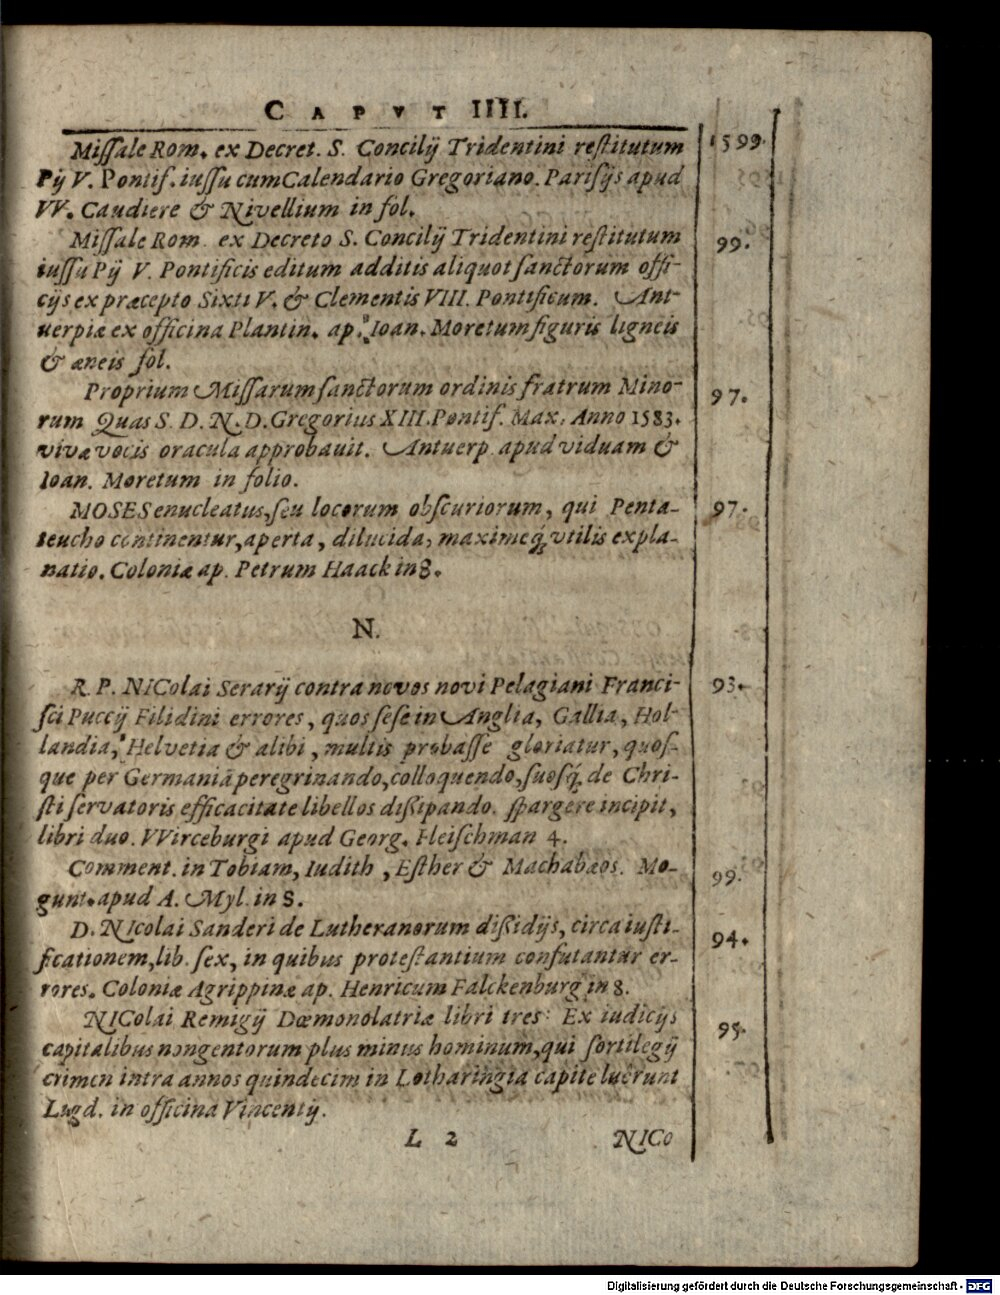 CAPVT IIII.
Missale Rom. ex Decret. S. Concilij Tridentini restitutum 1599.
Pij V. Pontif. iussu cum Calendario Gregoriano. Parisijs apud
VV. Caudiere & Nivellium in fol.
Missale Rom. ex Decreto S. Concilij Tridentini restitutum 99.
iussu Pij V. Pontificis editum additis aliquot sanctorum offi-
cijs ex præcepto Sixti V. & Clementis VIII. Pontificum. Ant-
uerpiæ ex officina Plantin. ap. Ioan. Moretum figuris ligneis
& æneis fol.
Proprium Missarum sanctorum ordinis fratrum Mino- 97.
rum Quas S. D. N. D. Gregorius XIII. Pontif. Max. Anno 1583.
vivæ vocis oracula approbauit. Antuerp. apud viduam &
Ioan. Moretum in folio.
MOSES enucleatus, seu locorum obscuriorum, qui Penta- 97.
teucho continentur, aperta, dilucida, maximeq́; vtilis expla-
natio. Coloniæ ap. Petrum Haack in 8.
N.
R. P. NIColai Serarij contra novos novi Pelagiani Franci- 93.
sci Puccij Filidini errores, quos sese in Anglia, Gallia, Hol-
landia, Helvetia & alibi, multis probasse gloriatur, quos-
que per Germaniā peregrinando, colloquendo, suosq́; de Chri-
sti servatoris efficacitate libellos dißipando. spargere incipit,
libri duo. VVirceburgi apud Georg. Fleischman 4.
Comment. in Tobiam, Iudith, Esther & Machabæos. Mo- 99.
gunt. apud A. Myl. in 8.
D. NIcolai Sanderi de Lutheranorum dißidijs, circa iusti- 94.
ficationem, lib. sex, in quibus protestantium confutantur er-
rores. Coloniæ Agrippinæ ap. Henricum Falckenburg in 8.
NIColai Remigij Dœmonolatriæ libri tres: Ex iudicijs 95.
capitalibus nongentorum plus minus hominum, qui sortilegij
crimen intra annos quindecim in Lotharingia capite luerunt
Lugd. in officina Vincentij.
L 2 NICo
Digitalisierung gefördert durch die Deutsche Forschungsgemeinschaft - DFG